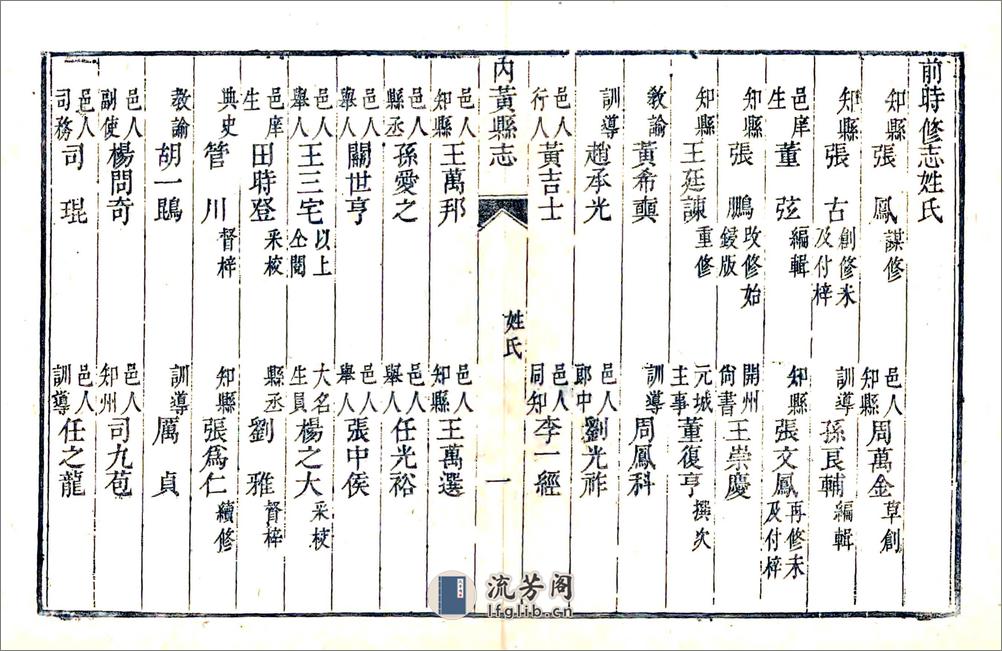 前時修志姓氏
知縣張鳳謀修 邑人知縣周萬金草創
知縣張古創修未及付梓 訓導孫良輔編輯
邑庠生董弦編輯 知縣張文鳳再修未及付梓
知縣張鵬改修始鋟版 開州尚書王崇慶
知縣王廷諫重修 元城主事董復亨撰次
教諭黃希 訓導周鳳科
訓導趙承光 邑人郎中劉光祚
邑人行人黃吉士 邑人同知李一經
內黃縣志 姓氏 一
邑人知縣王萬邦 邑人知縣王萬選
邑人縣丞孫愛之 邑人舉人任光裕
邑人舉人關世亨 邑人舉人張中侯
邑人舉人王三宅以上仝閱 大名生員楊之大采校
邑庠生田時登采校 縣丞劉雅督梓
典史管川督梓 知縣張為仁續修
教諭胡一鵾 訓導厲貞
邑人副使楊問奇 邑人知州司九苞
邑人司務司琨 邑人訓導任之龍
流芳閣
lfglib.cn